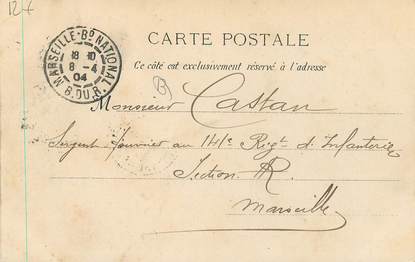 12 f
MARSEILLE-Bd NATIONAL
18 10
8 -4
04
B. DU R.
CARTE POSTALE
Ce côté est exclusivement réservé à l'adresse
(B)
Monsieur Castan
Sergent fourrier au 141e Rigt d'Infanterie
Section HR
Marseille